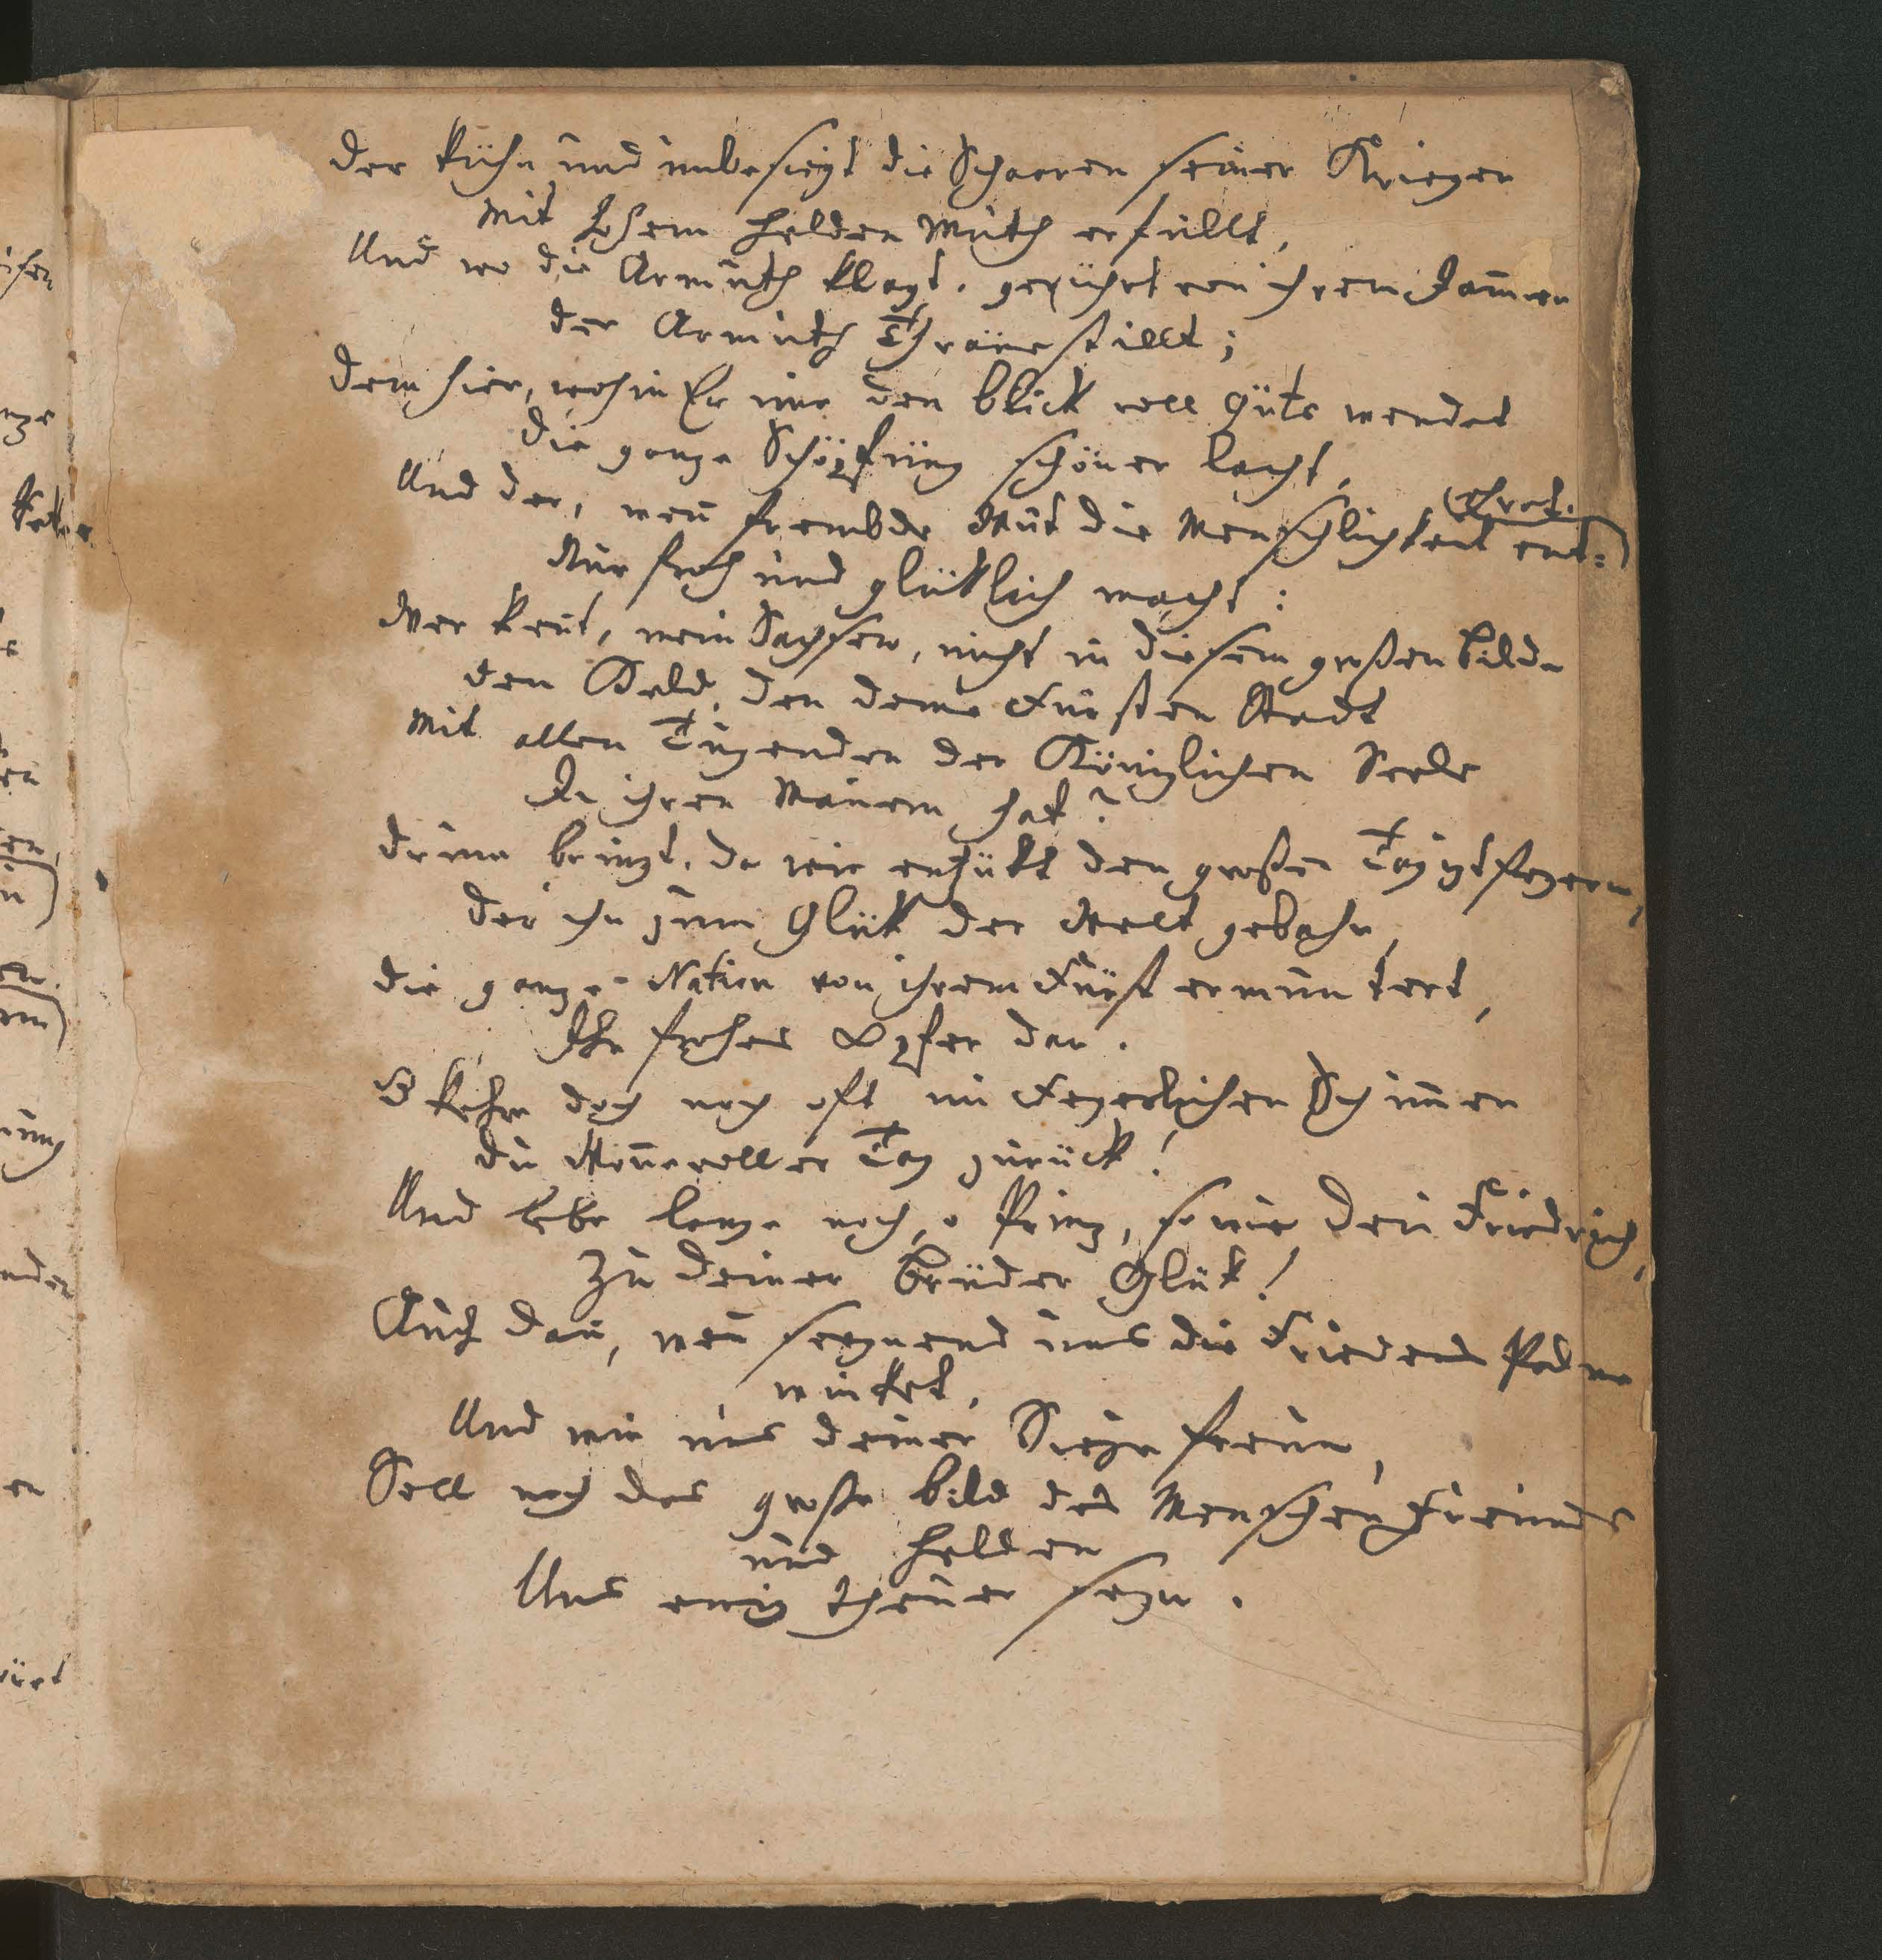 Der kühn und unbesiegt die Schaaren seiner Krieger
Mit hohem Helden Muth erfüllt,
Und wo die Armuth klagt, gerührt von ihrem Jam̄er
der Armuth Thräne stillt;
Dem hier, wohin Er nur den Blick voll Güte wendet
Die ganze Schöpfung schöner lacht,
Und der, wen̄ frembde Wut die Menschlichkeit ent=
(ehret.
Nur froh und glüklich macht:
Wer kent, mein Sachsen, nicht in diesem großen Bilde
den Held, den deine Fürsten Stadt
Mit allen Tugenden der Königlichen Seele
In ihren Mauern hat?
Drum bringt, da wir entzükt den großen Tag izt feyern,
Der ihn zum Glük der Welt gebahr,
Die ganze Nation von ihrem Fürst ermuntert,
Ihr frohes Opfer dar.
O kehre doch noch oft im Feyerlichen Schim̄er
Du Won̄evoller Tag zurück!
Und lebe lange noch, o Prinz, so wie dein Friedrich,
Zu deiner Brüder Glük!
Auch dan̄, wen̄ seegnend uns die Friedens Palme
winket,
Und wir uns deiner Siege freun,
Soll noch das große Bild des Menschen Freundes
und Helden
Uns ewig theuer seyn.